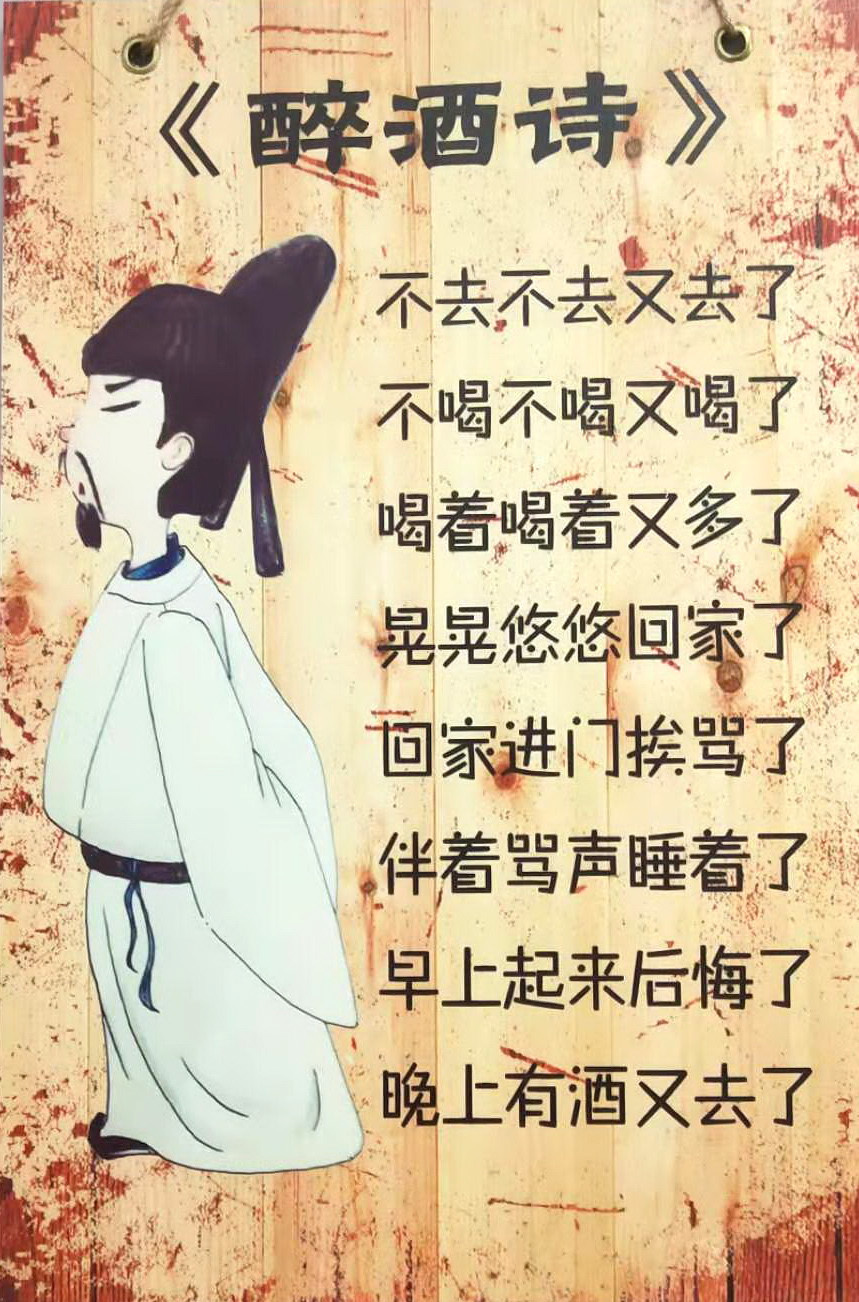 《醉酒诗》
不去不去又去了
不喝不喝又喝了
喝着喝着又多了
晃晃悠悠回家了
回家进门挨骂了
伴着骂声睡着了
早上起来后悔了
晚上有酒又去了